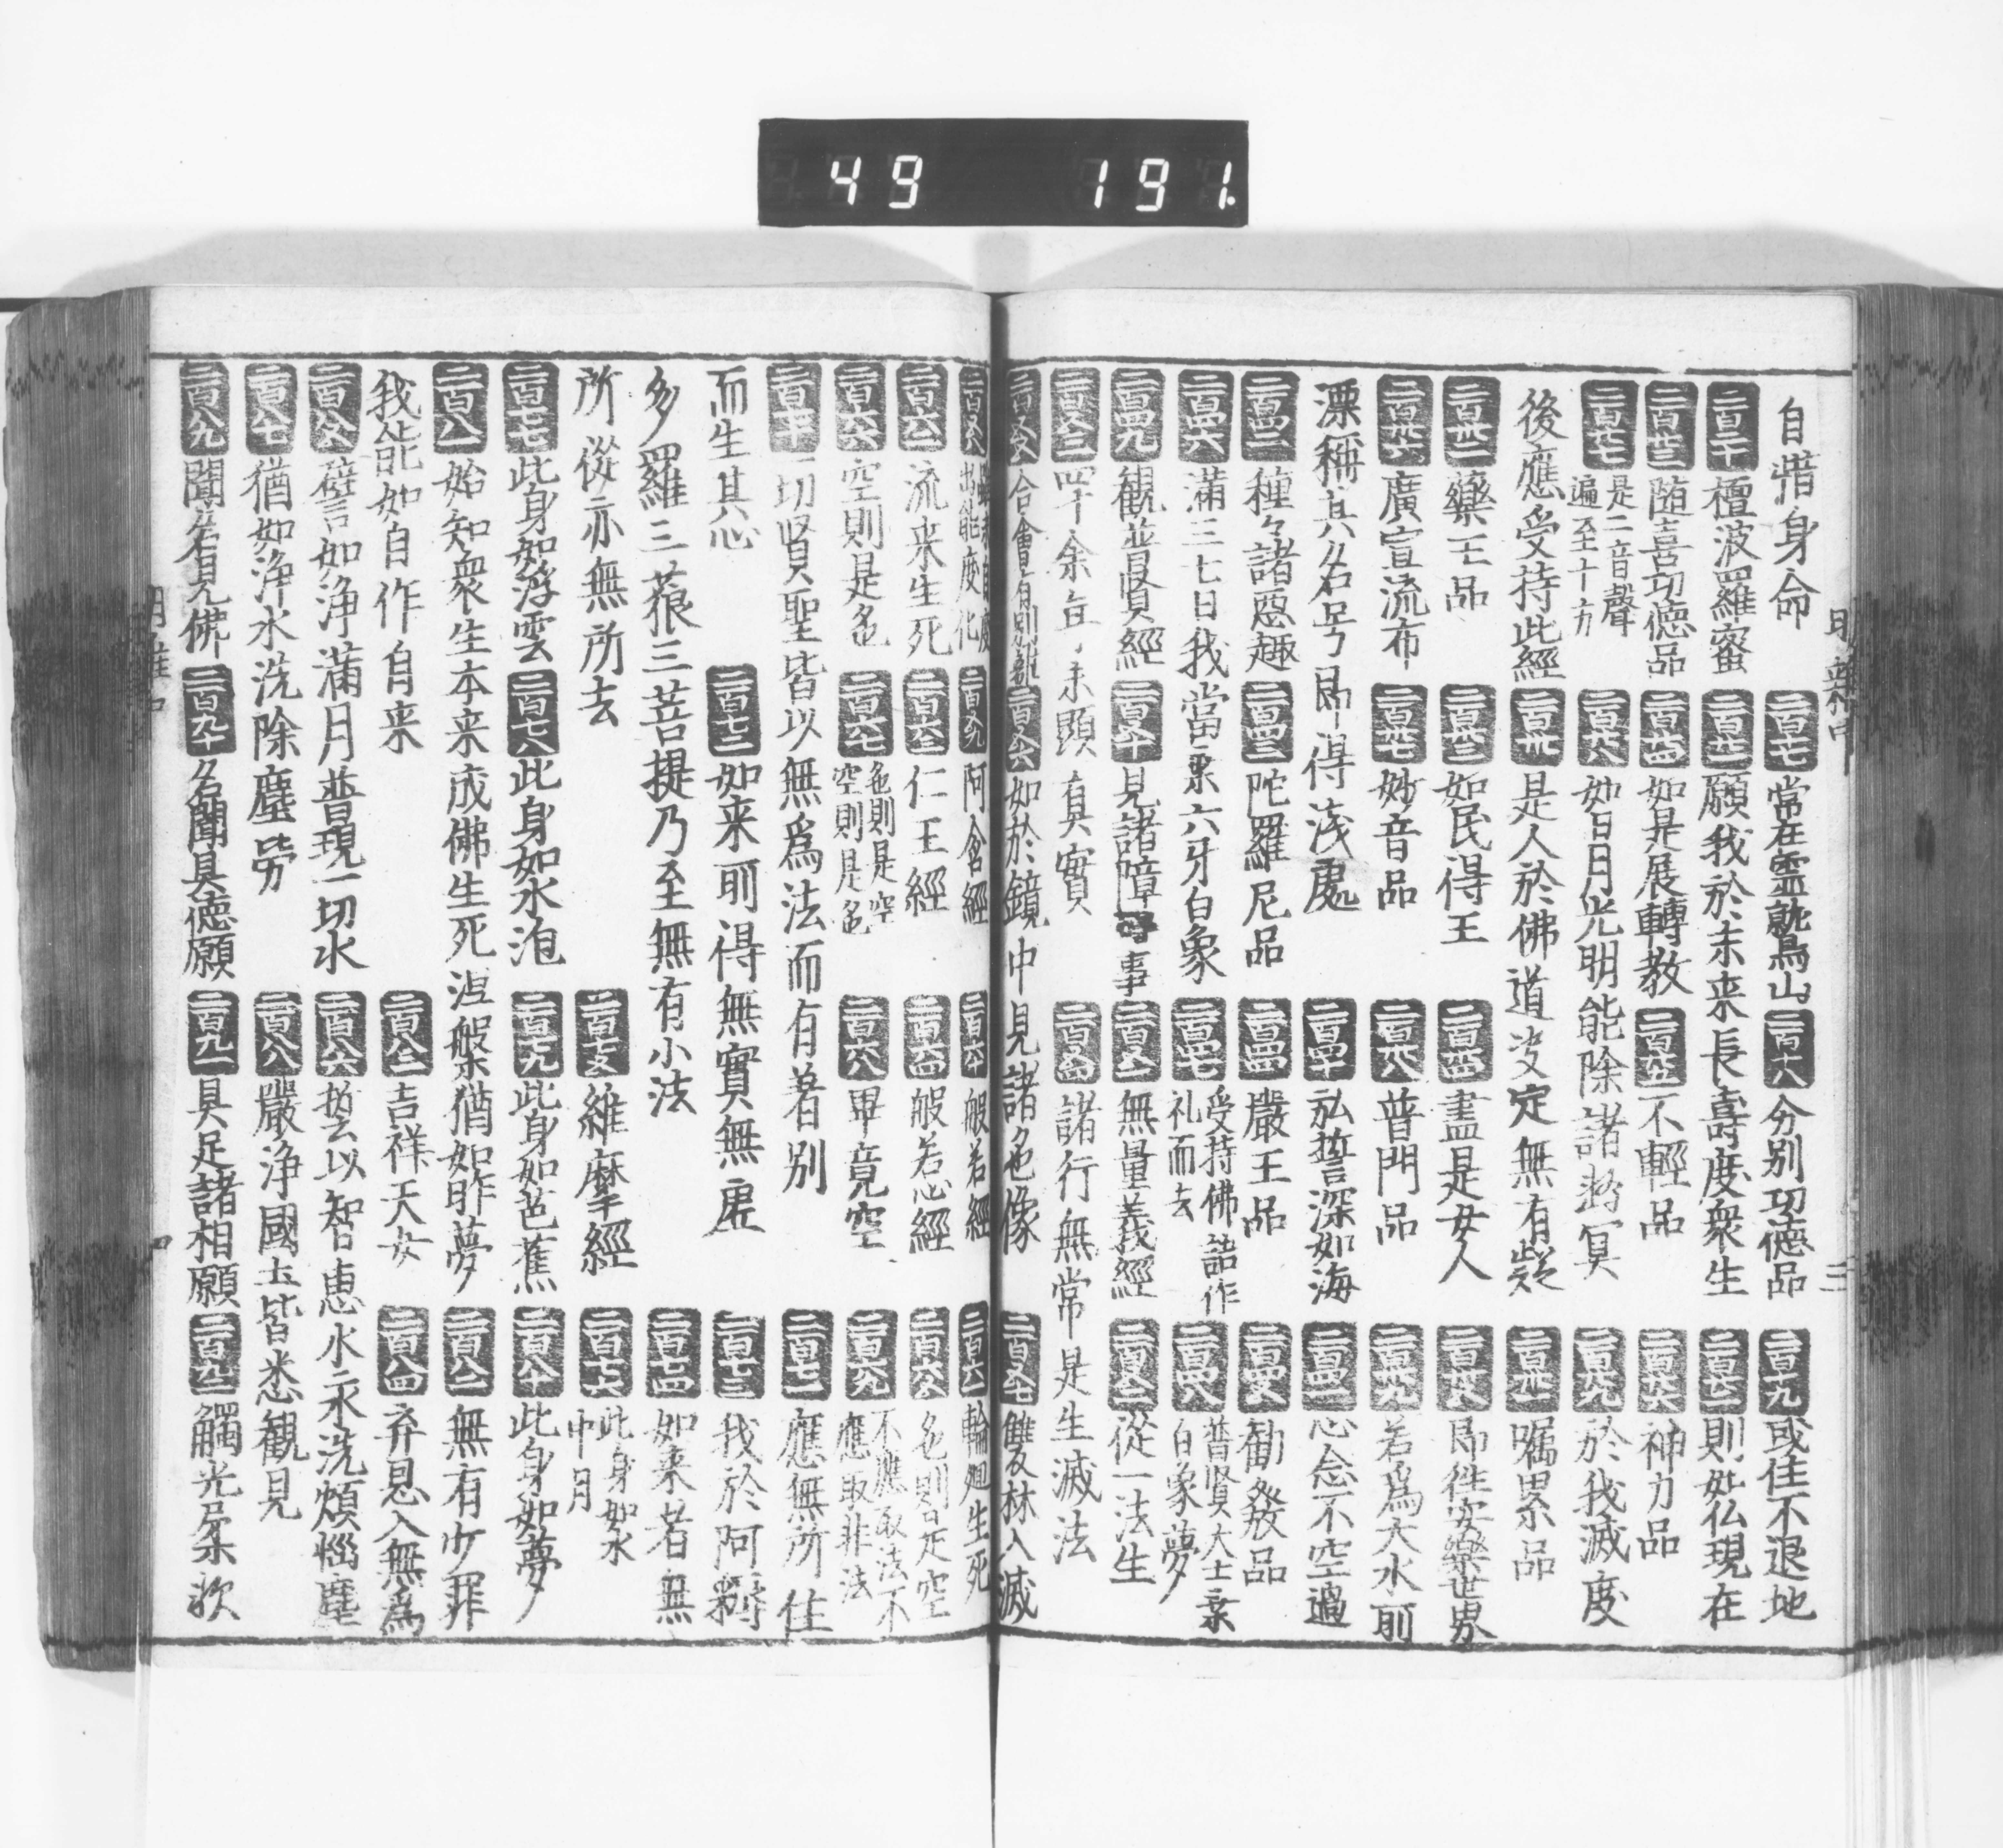 49 191.
自惜身命 二百十七 常在霊鷲山 二百十八 分别功徳品 二百十九 或住不退地
二百二十 檀波羅蜜 二百廿一 願我於未来長壽度衆生 二百廿二 則如仏現在
二百廿三 随喜功徳品 二百廿四 如是展轉教 二百廿五 不輕品 二百廿六 神力品
二百廿七 是二音聲遍至十方 二百廿八 如日月光明能除諸幽冥 二百廿九 於我滅度
後應受持此經 二百卅 是人於佛道决定無有疑 二百卅一 嘱累品
二百卅二 藥王品 二百卅三 如民得王 二百卅四 盡是女人 二百卅五 即徃安樂世界
二百卅六 廣宣流布 二百卅七 妙音品 二百卅八 普門品 二百卅九 若爲大水所
漂稱其名号即得浅處 二百四十 弘誓深如海 二百四一 心念不空過
二百四二 種々諸惡趣 二百四三 陀羅尼品 二百四四 嚴王品 二百四五 勧發品
二百四六 滿三七日我當乗六牙白象 二百四七 受持佛語作礼而去 二百四八 普賢大士乗白象夢
二百四九 観普賢經 二百五十 見諸障事 二百五一 無量義經 二百五二 從一法生
二百五三 四十余年未顯真實 二百五四 諸行無常是生滅法
二百五五 合會有别離 二百五六 如於鏡中見諸色像 二百五七 雙林入滅
二百五八 自度化 二百五九 阿含經 二百六十 般若經 二百六一 輪廻生死
二百六二 流来生死 二百六三 仁王經 二百六四 般若心經 二百六五 色則是空
二百六六 空則是色 二百六七 色則是空空則是色 二百六八 畢竟空 二百六九 不應取法不應取非法
二百七十 一切賢聖皆以無爲法而有差别 二百七一 應無所住
而生其心 二百七二 如来所得無實無虚 二百七三 我於阿耨
多羅三藐三菩提乃至無有小法 二百七四 如来者無
所從亦無所去 二百七五 維摩經 二百七六 此身如水中月
二百七七 此身如浮雲 二百七八 此身如水泡 二百七九 此身如芭蕉 二百八十 此身如夢
二百八一 始知衆生本来成佛生死涅槃猶如昨夢 二百八二 無有少罪
我能如自作自来 二百八三 吉祥天女 二百八四 弃恩入無爲
二百八五 譬如浄滿月普現一切水 二百八六 誓以智恵水永洗煩惱塵
二百八七 猶如浄水洗除塵労 二百八八 嚴浄國土皆悉観見
二百八九 聞名見佛 二百九十 名聞具徳願 二百九一 具足諸相願 二百九二 觸光柔軟